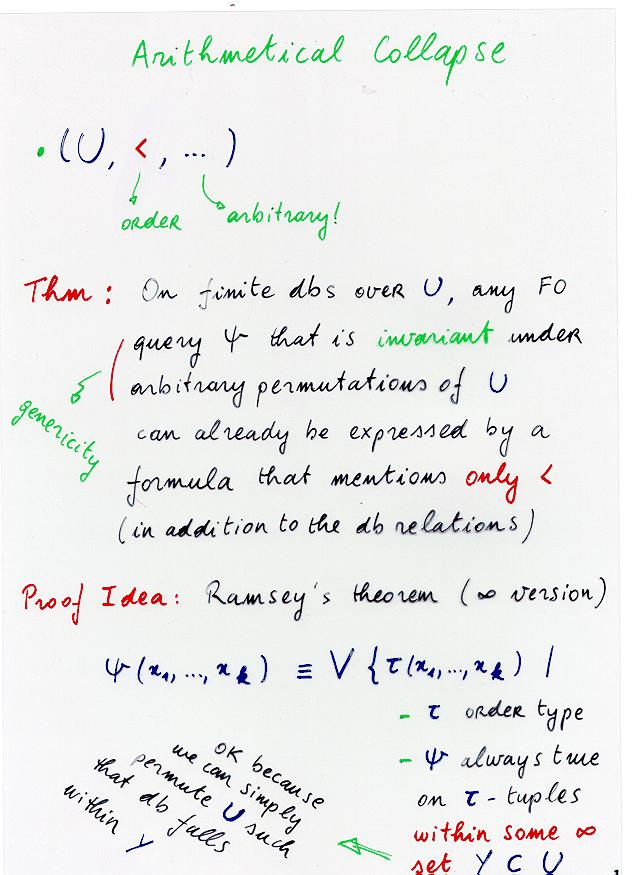 Arithmetical Collapse
• (U, <, ... )
order arbitrary!
Thm: On finite dbs over U, any FO
query Ψ that is invariant under
arbitrary permutations of U
genericity
can already be expressed by a
formula that mentions only <
(in addition to the db relations)
Proof Idea: Ramsey's theorem (∞ version)
Ψ(x₁, ..., xₖ) ≡ V { τ(x₁, ..., xₖ) |
- τ order type
- Ψ always true
on τ-tuples
within some ∞
set Y ⊂ U
OK because
we can simply
permute U such
that db falls
within Y